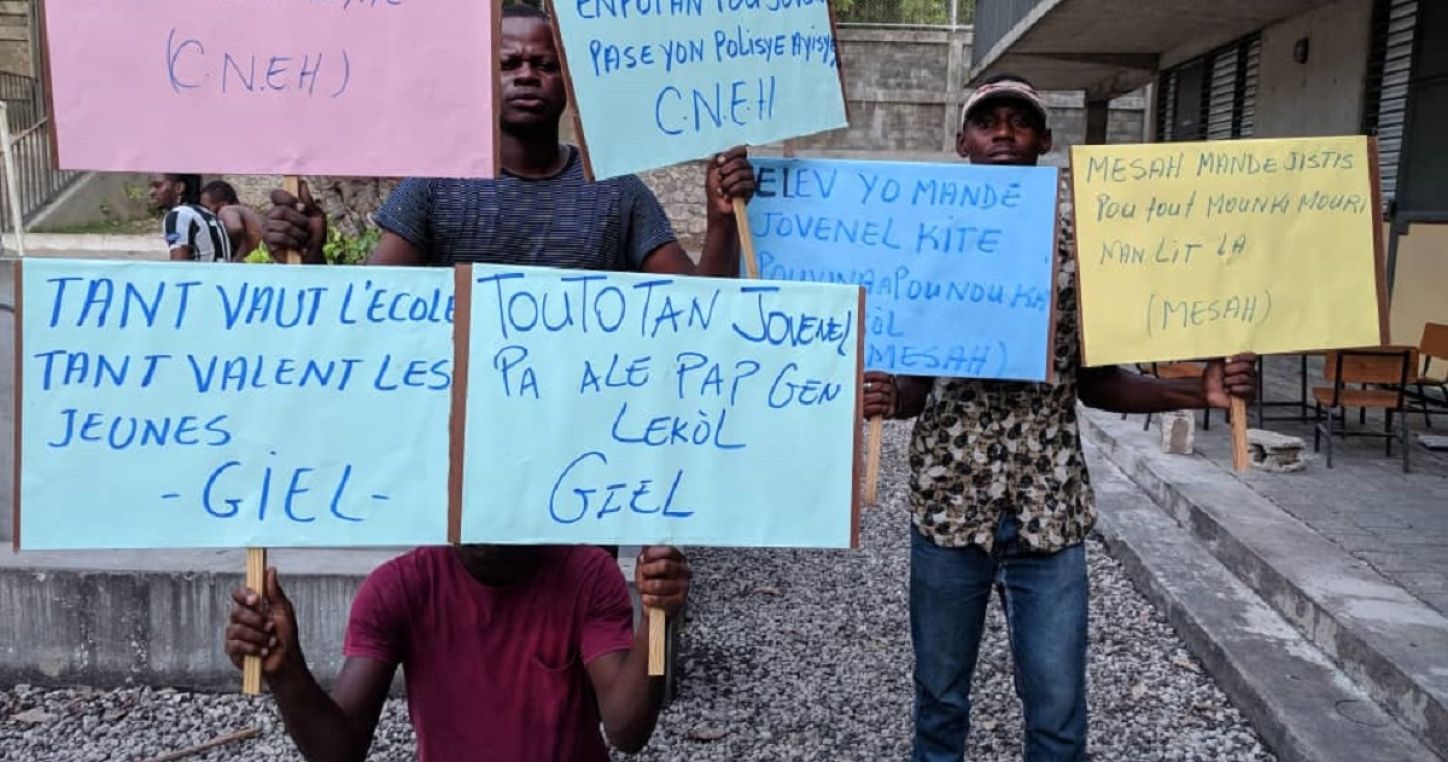 (C.N.E.H)
PASE YON POLISYE AYISYE
C.N.E.H
ELEV YO MANDE
JOVENEL KITE
(MESAH)
MESAH MANDE JISTIS
POU tout MOUNKI MOURI
NAN LIT LA
(MESAH)
TANT VAUT L'ECOLE
TANT VALENT LES
JEUNES
- GIEL -
TOUTOTAN JOVENEL
PA ALE PAP GEN
LEKÒL
GIEL